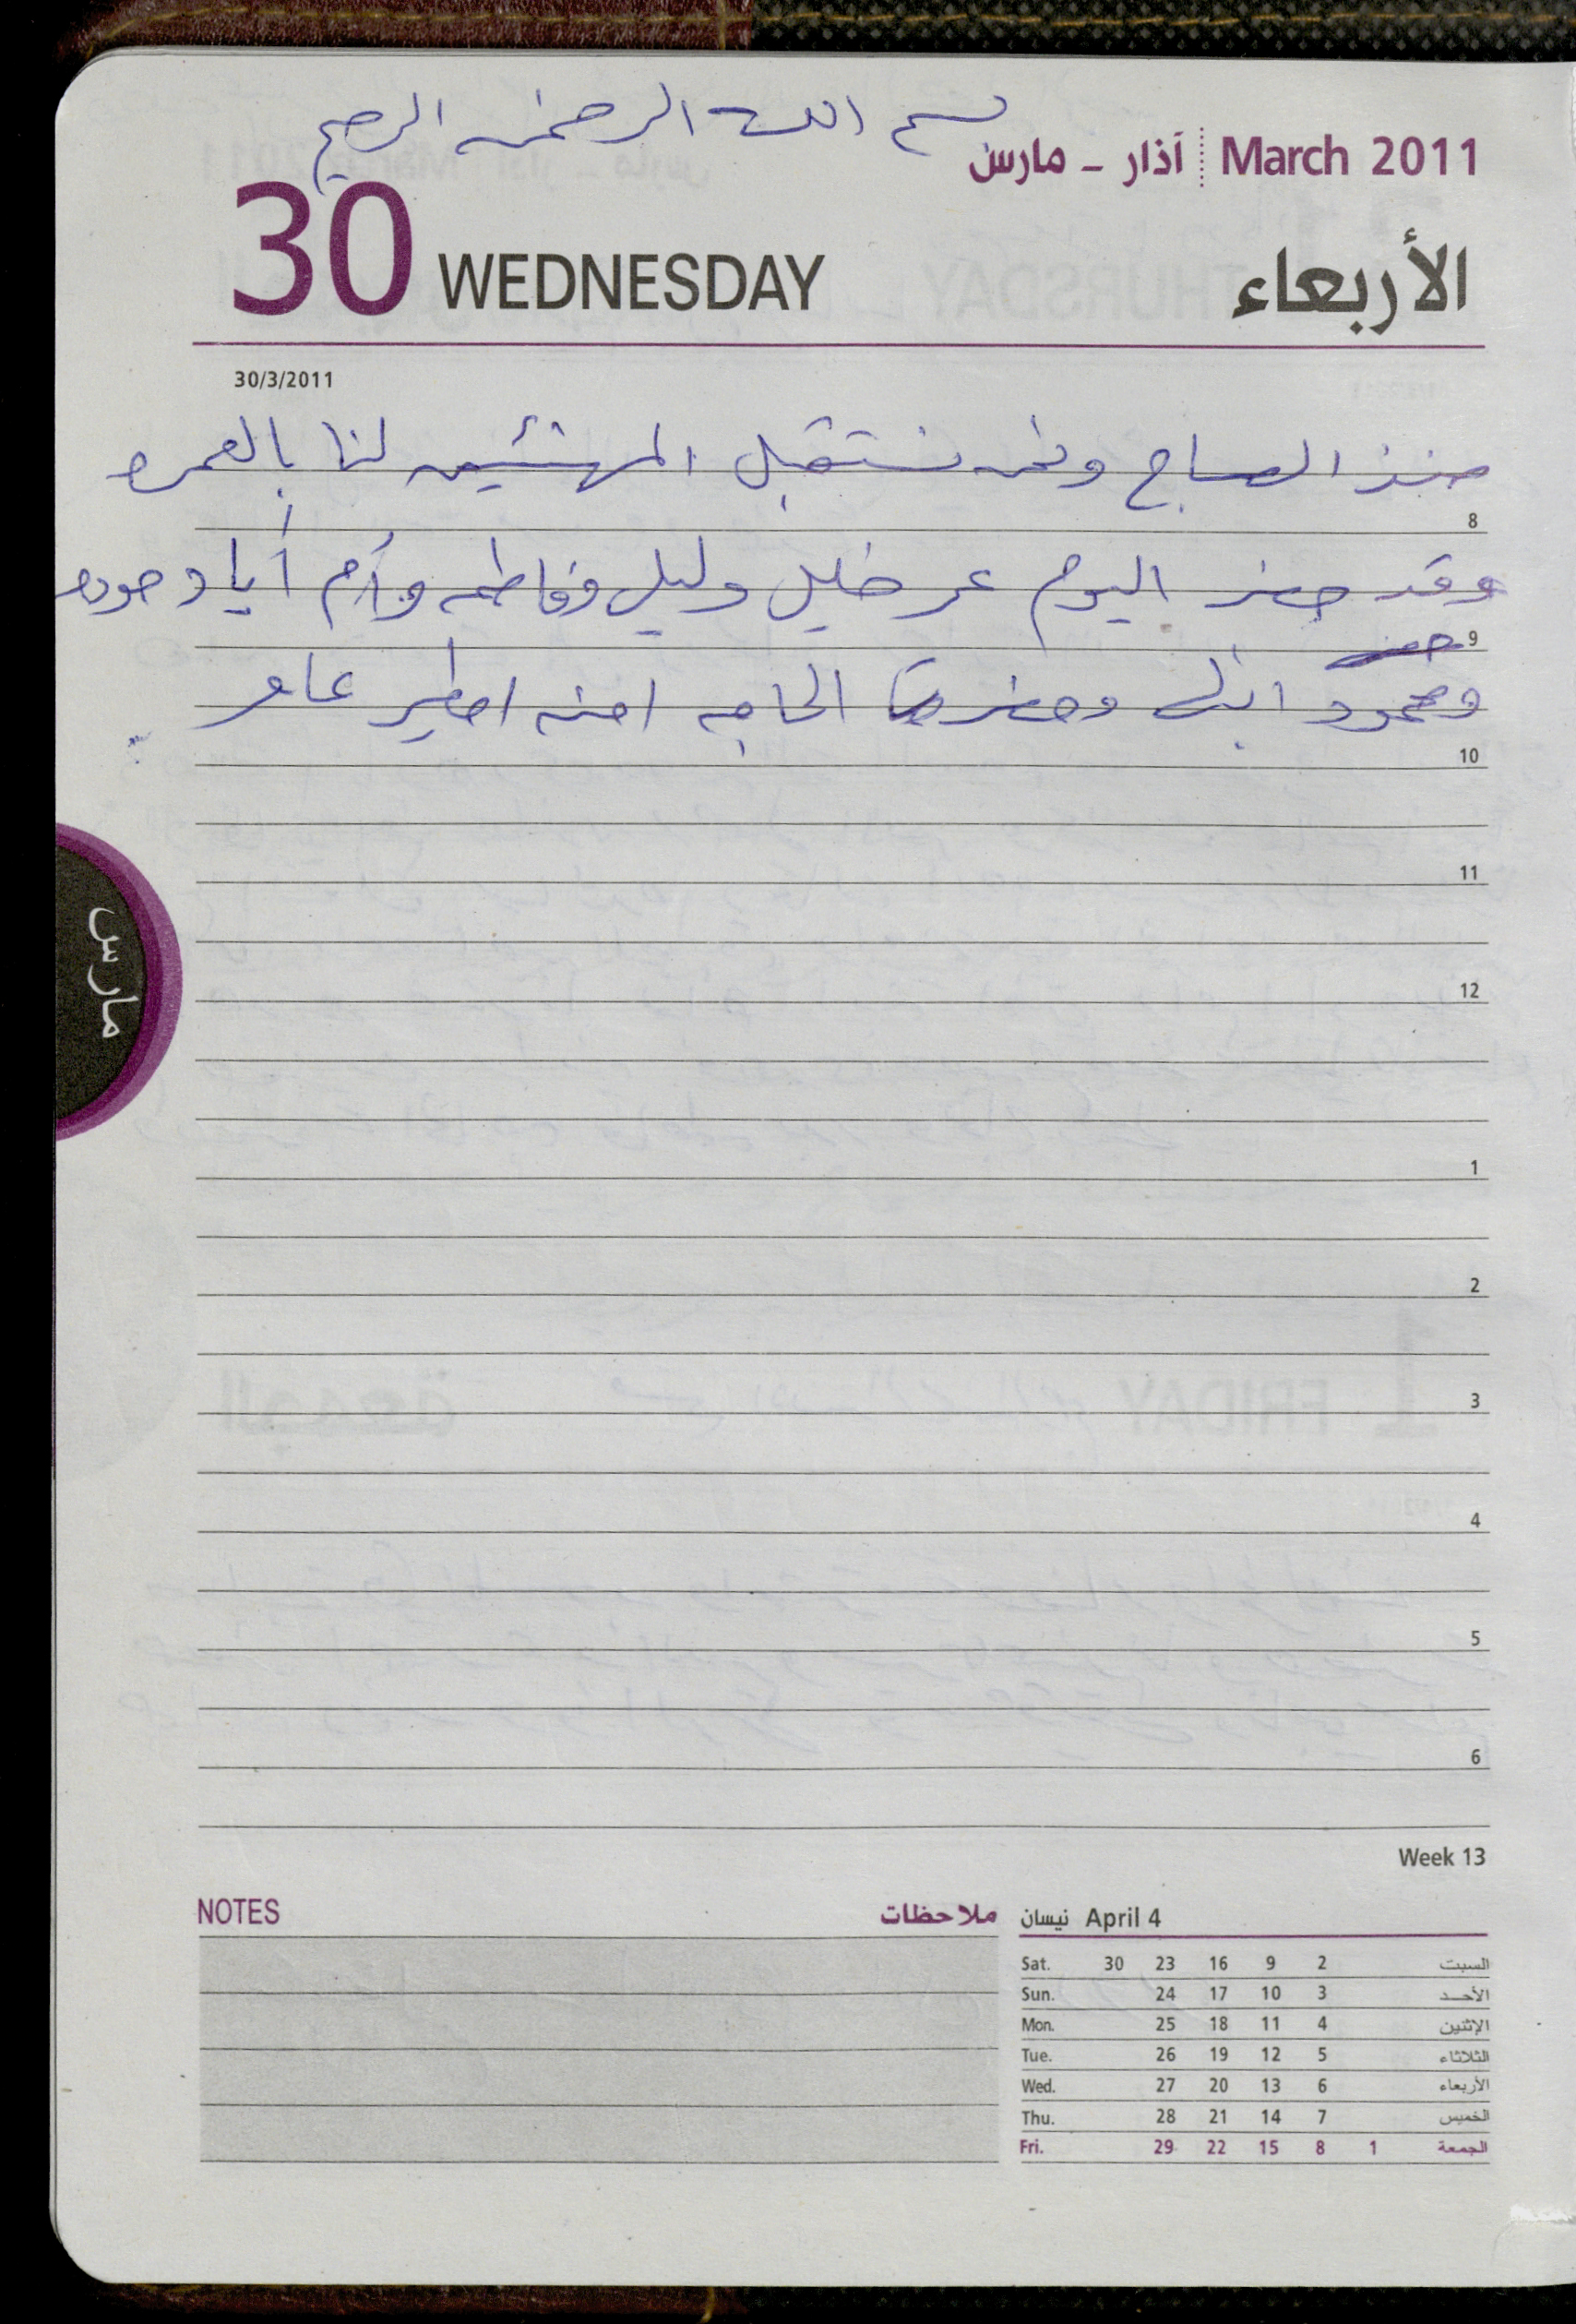 بسم الله الرحمن الرحيم
March 2011 آذار - مارس
30 WEDNESDAY الأربعاء
30/3/2011
منذ الصباح ونحن نستقبل المهنئين لنا بالعمره
8
وقد حضر اليوم عمر خليل وليلى وفاطمه وأم أياد
9
ومحمود الحاجه امنه عامر
10
11
12
مارس
1
2
3
4
5
6
Week 13
NOTES ملاحظات
April 4 نيسان
Sat. 30 23 16 9 2 السبت
Sun. 24 17 10 3 الأحد
Mon. 25 18 11 4 الإثنين
Tue. 26 19 12 5 الثلاثاء
Wed. 27 20 13 6 الأربعاء
Thu. 28 21 14 7 الخميس
Fri. 29 22 15 8 1 الجمعة